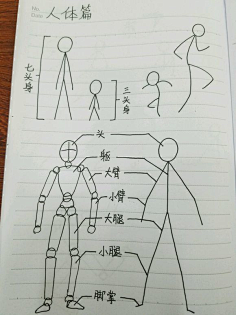 No.
Date
人体篇
七头身
三头身
头
躯
大臂
小臂
大腿
小腿
脚掌